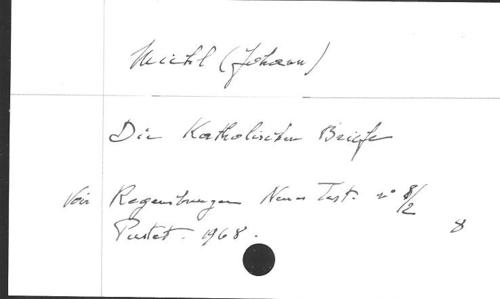 Michl (Johann)
Die Katholischen Briefe
Voir Regensburger Neues Test. n° 8/2
Pustet. 1968.
8